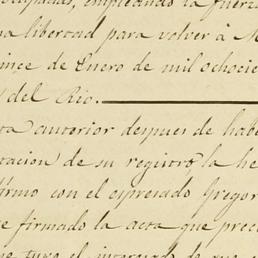 empleando la fuerza
libertad para volver á M
ince de Enero de mil ochocie
del Rio.
ta anterior despues de habe
tacion de su registro, la he
firmo con el espresado Gregor
e firmado la acta que prece